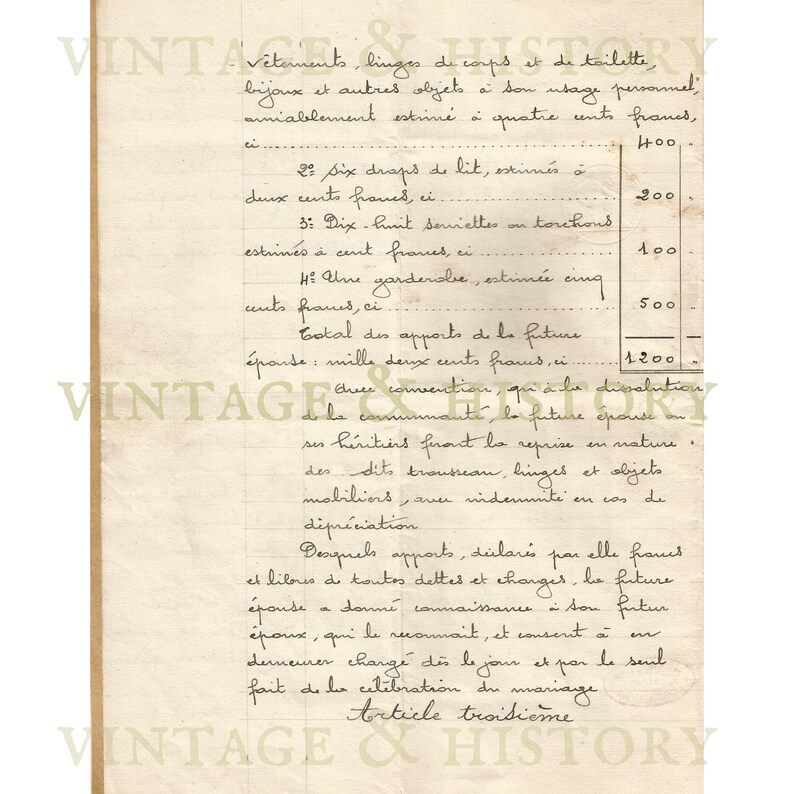 VINTAGE & HISTORY
- Vêtements, linges de corps et de toilette,
bijoux et autres objets à son usage personnel,
amiablement estimé à quatre cents francs,
ci ........ 400 "
2º Six draps de lit, estimés à
deux cents francs, ci ........ 200 "
3º Dix-huit serviettes ou torchons
estimés à cent francs, ci ........ 100 "
4º Une garderobe, estimée cinq
cents francs, ci ........ 500 "
Total des apports de la future
épouse : mille deux cents francs, ci ........ 1200 "
Avec convention, qu'à la dissolution
VINTAGE & HISTORY
de la communauté, la future épouse ou
ses héritiers feront la reprise en nature
des dits trousseau, linges et objets
mobiliers, avec indemnité en cas de
dépréciation
Desquels apports, déclarés par elle francs
et libres de toutes dettes et charges, la future
épouse a donné connaissance à son futur
époux, qui le reconnait, et consent à en
demeurer chargé dès le jour et par le seul
fait de la célébration du mariage
Article troisième
VINTAGE & HISTORY